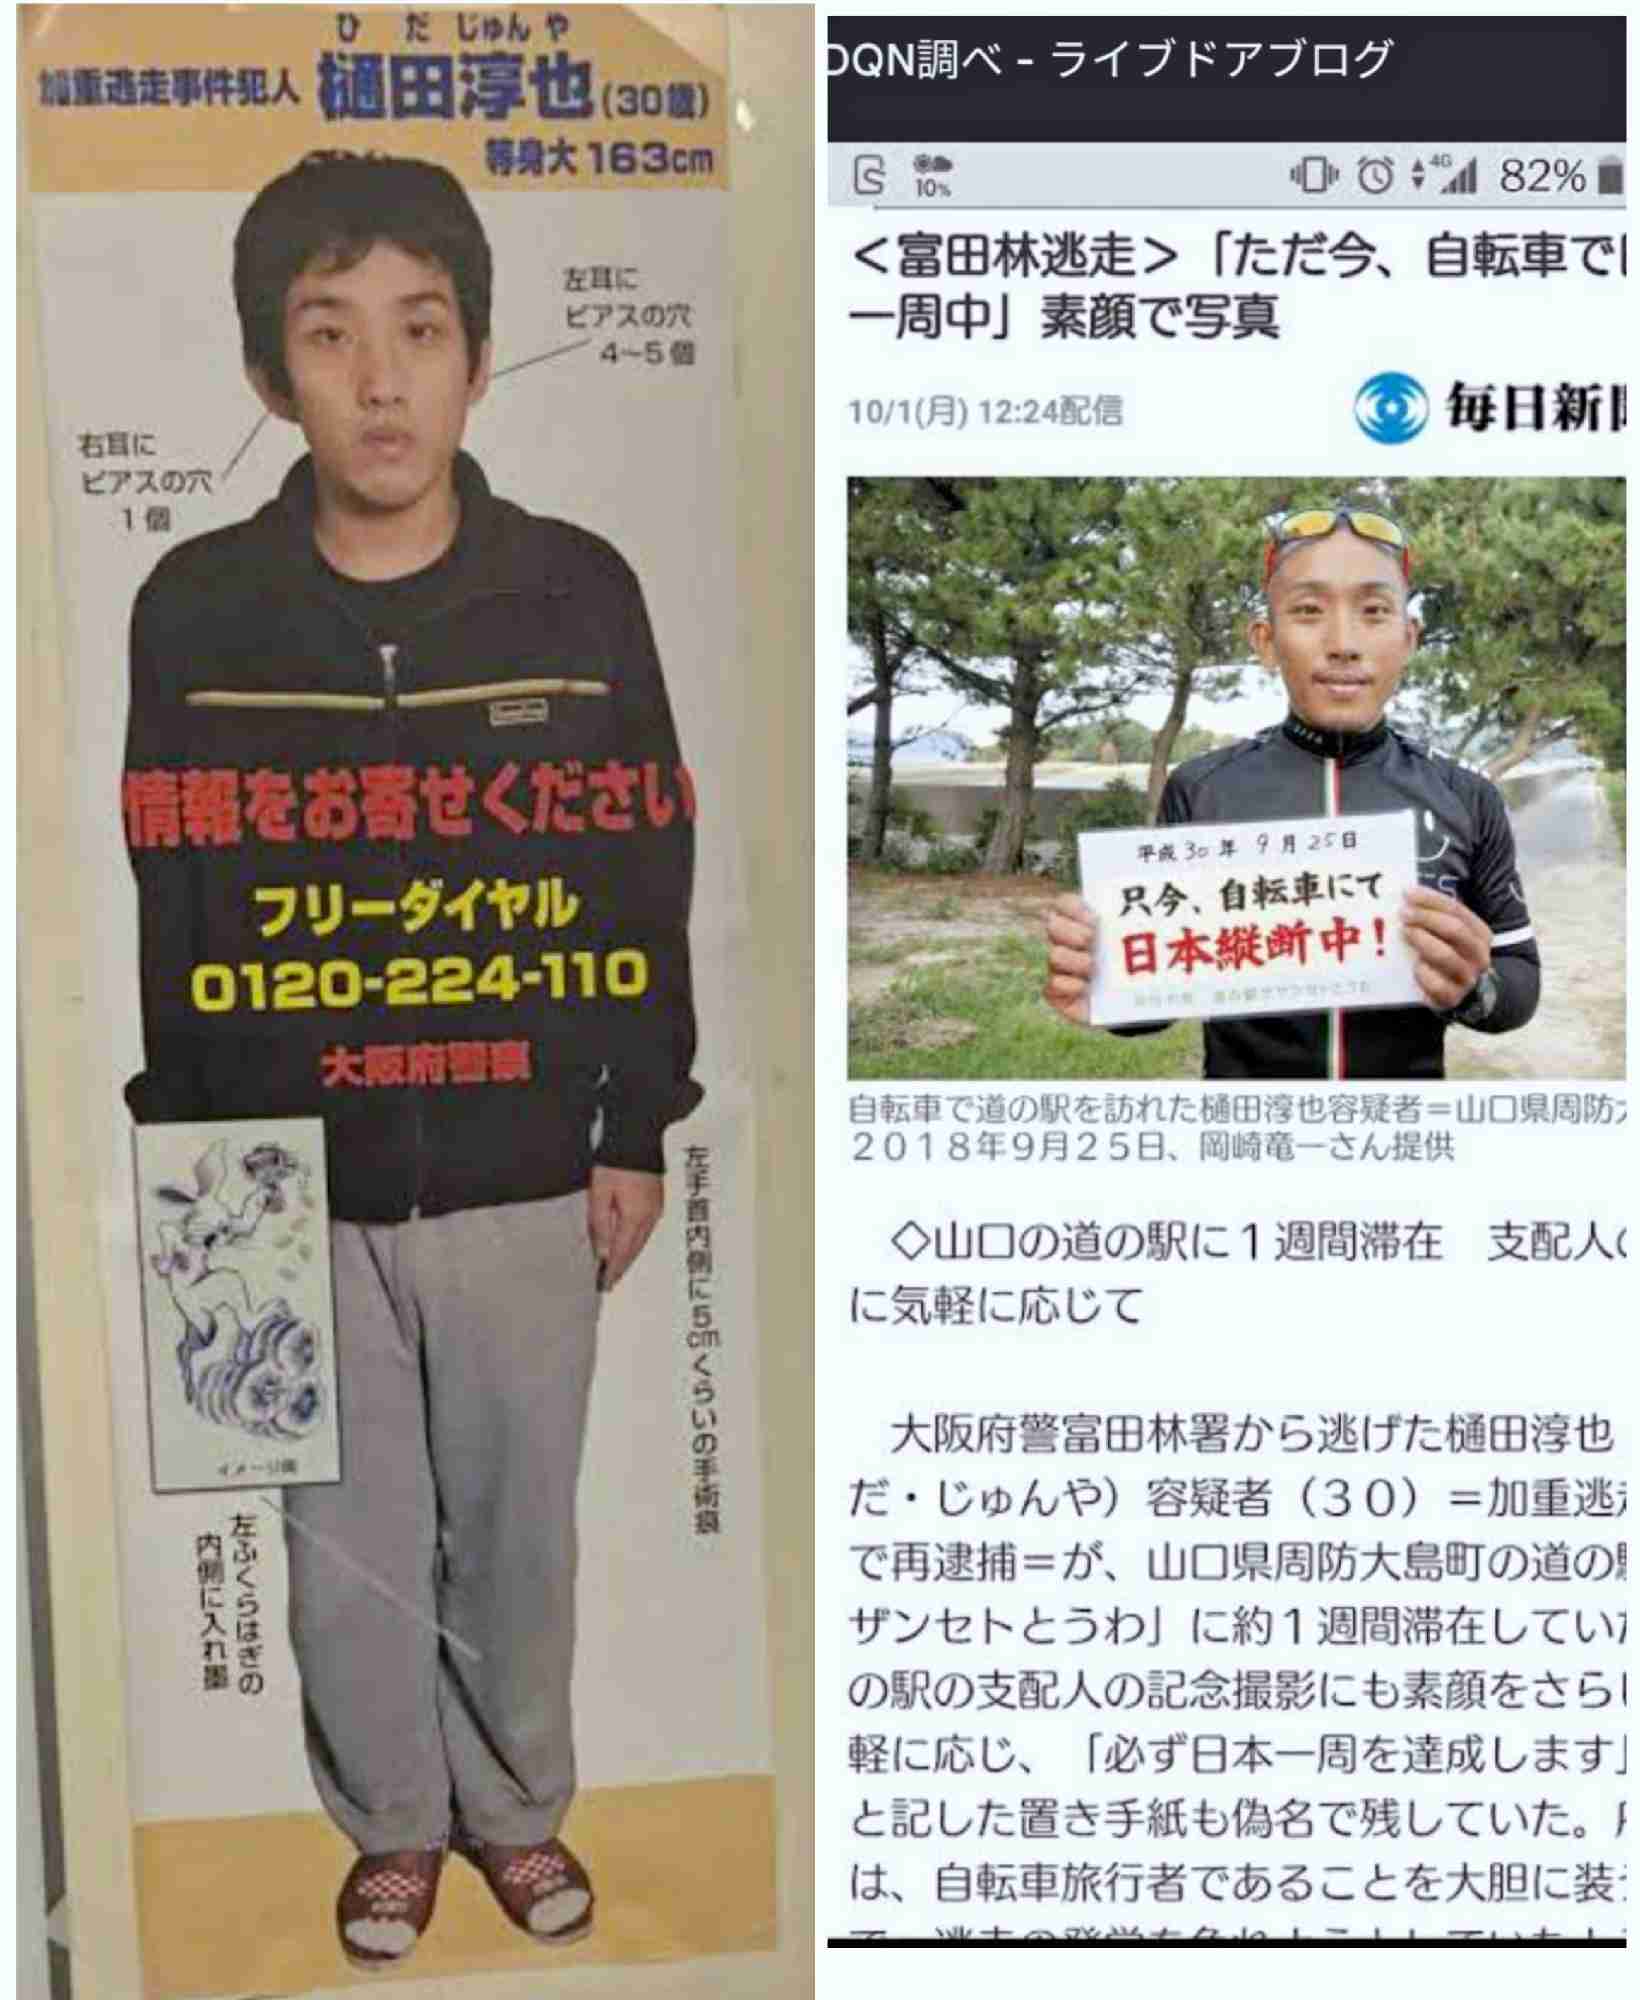 ひ だ じゅん や
加重逃走事件犯人 樋田淳也(30歳)
等身大163cm
左耳に
ピアスの穴
4~5個
右耳に
ピアスの穴
1個
情報をお寄せください
フリーダイヤル
0120-224-110
大阪府警察
イメージ画
左手首内側に5cmくらいの手術痕
左ふくらはぎの
内側に入れ墨
DQN調べ - ライブドアブログ
10%
4G
82%
<富田林逃走>「ただ今、自転車で
一周中」素顔で写真
10/1(月) 12:24配信
毎日新
平成30年9月25日
只今、自転車にて
日本縦断中!
自転車で道の駅を訪れた樋田淳也容疑者=山口県周防
2018年9月25日、岡崎竜一さん提供
◇山口の道の駅に1週間滞在 支配人
に気軽に応じて
大阪府警富田林署から逃げた樋田淳也
だ・じゅんや)容疑者(30)=加重逃
で再逮捕=が、山口県周防大島町の道の
ザンセトとうわ」に約1週間滞在してい
の駅の支配人の記念撮影にも素顔をさら
軽に応じ、「必ず日本一周を達成します」
と記した置き手紙も偽名で残していた。
は、自転車旅行者であることを大胆に装